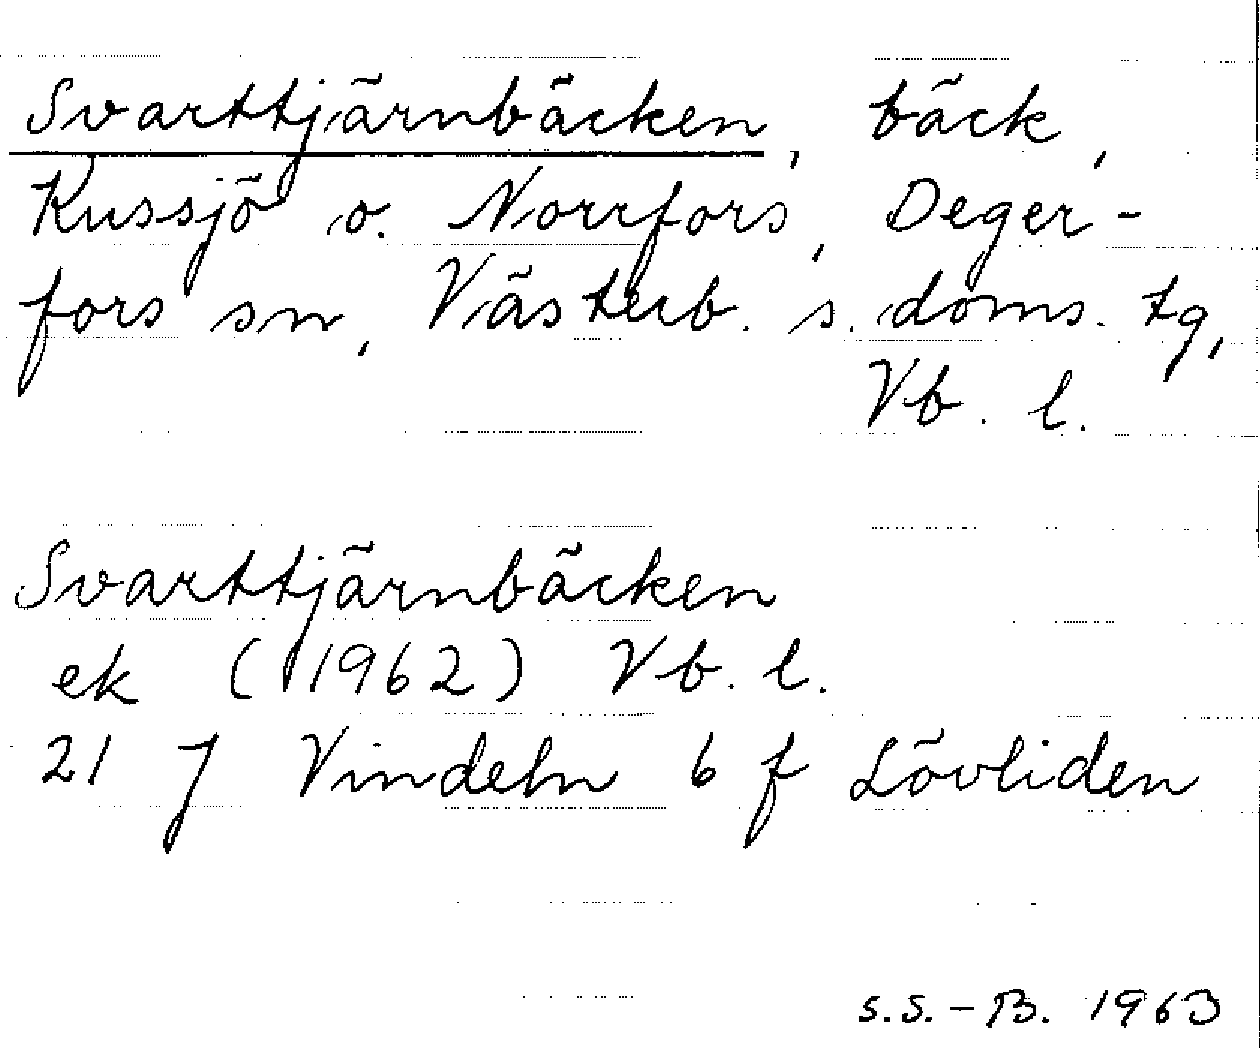 Svarttjärnbäcken, bäck,
Kussjö o. Norrfors, Deger-
fors sn, Västerb. s. doms. tg,
Vb. l.
Svarttjärnbäcken
ek (1962) Vb. l.
21 J Vindeln 6 f Lövliden
S.S.-B. 1963